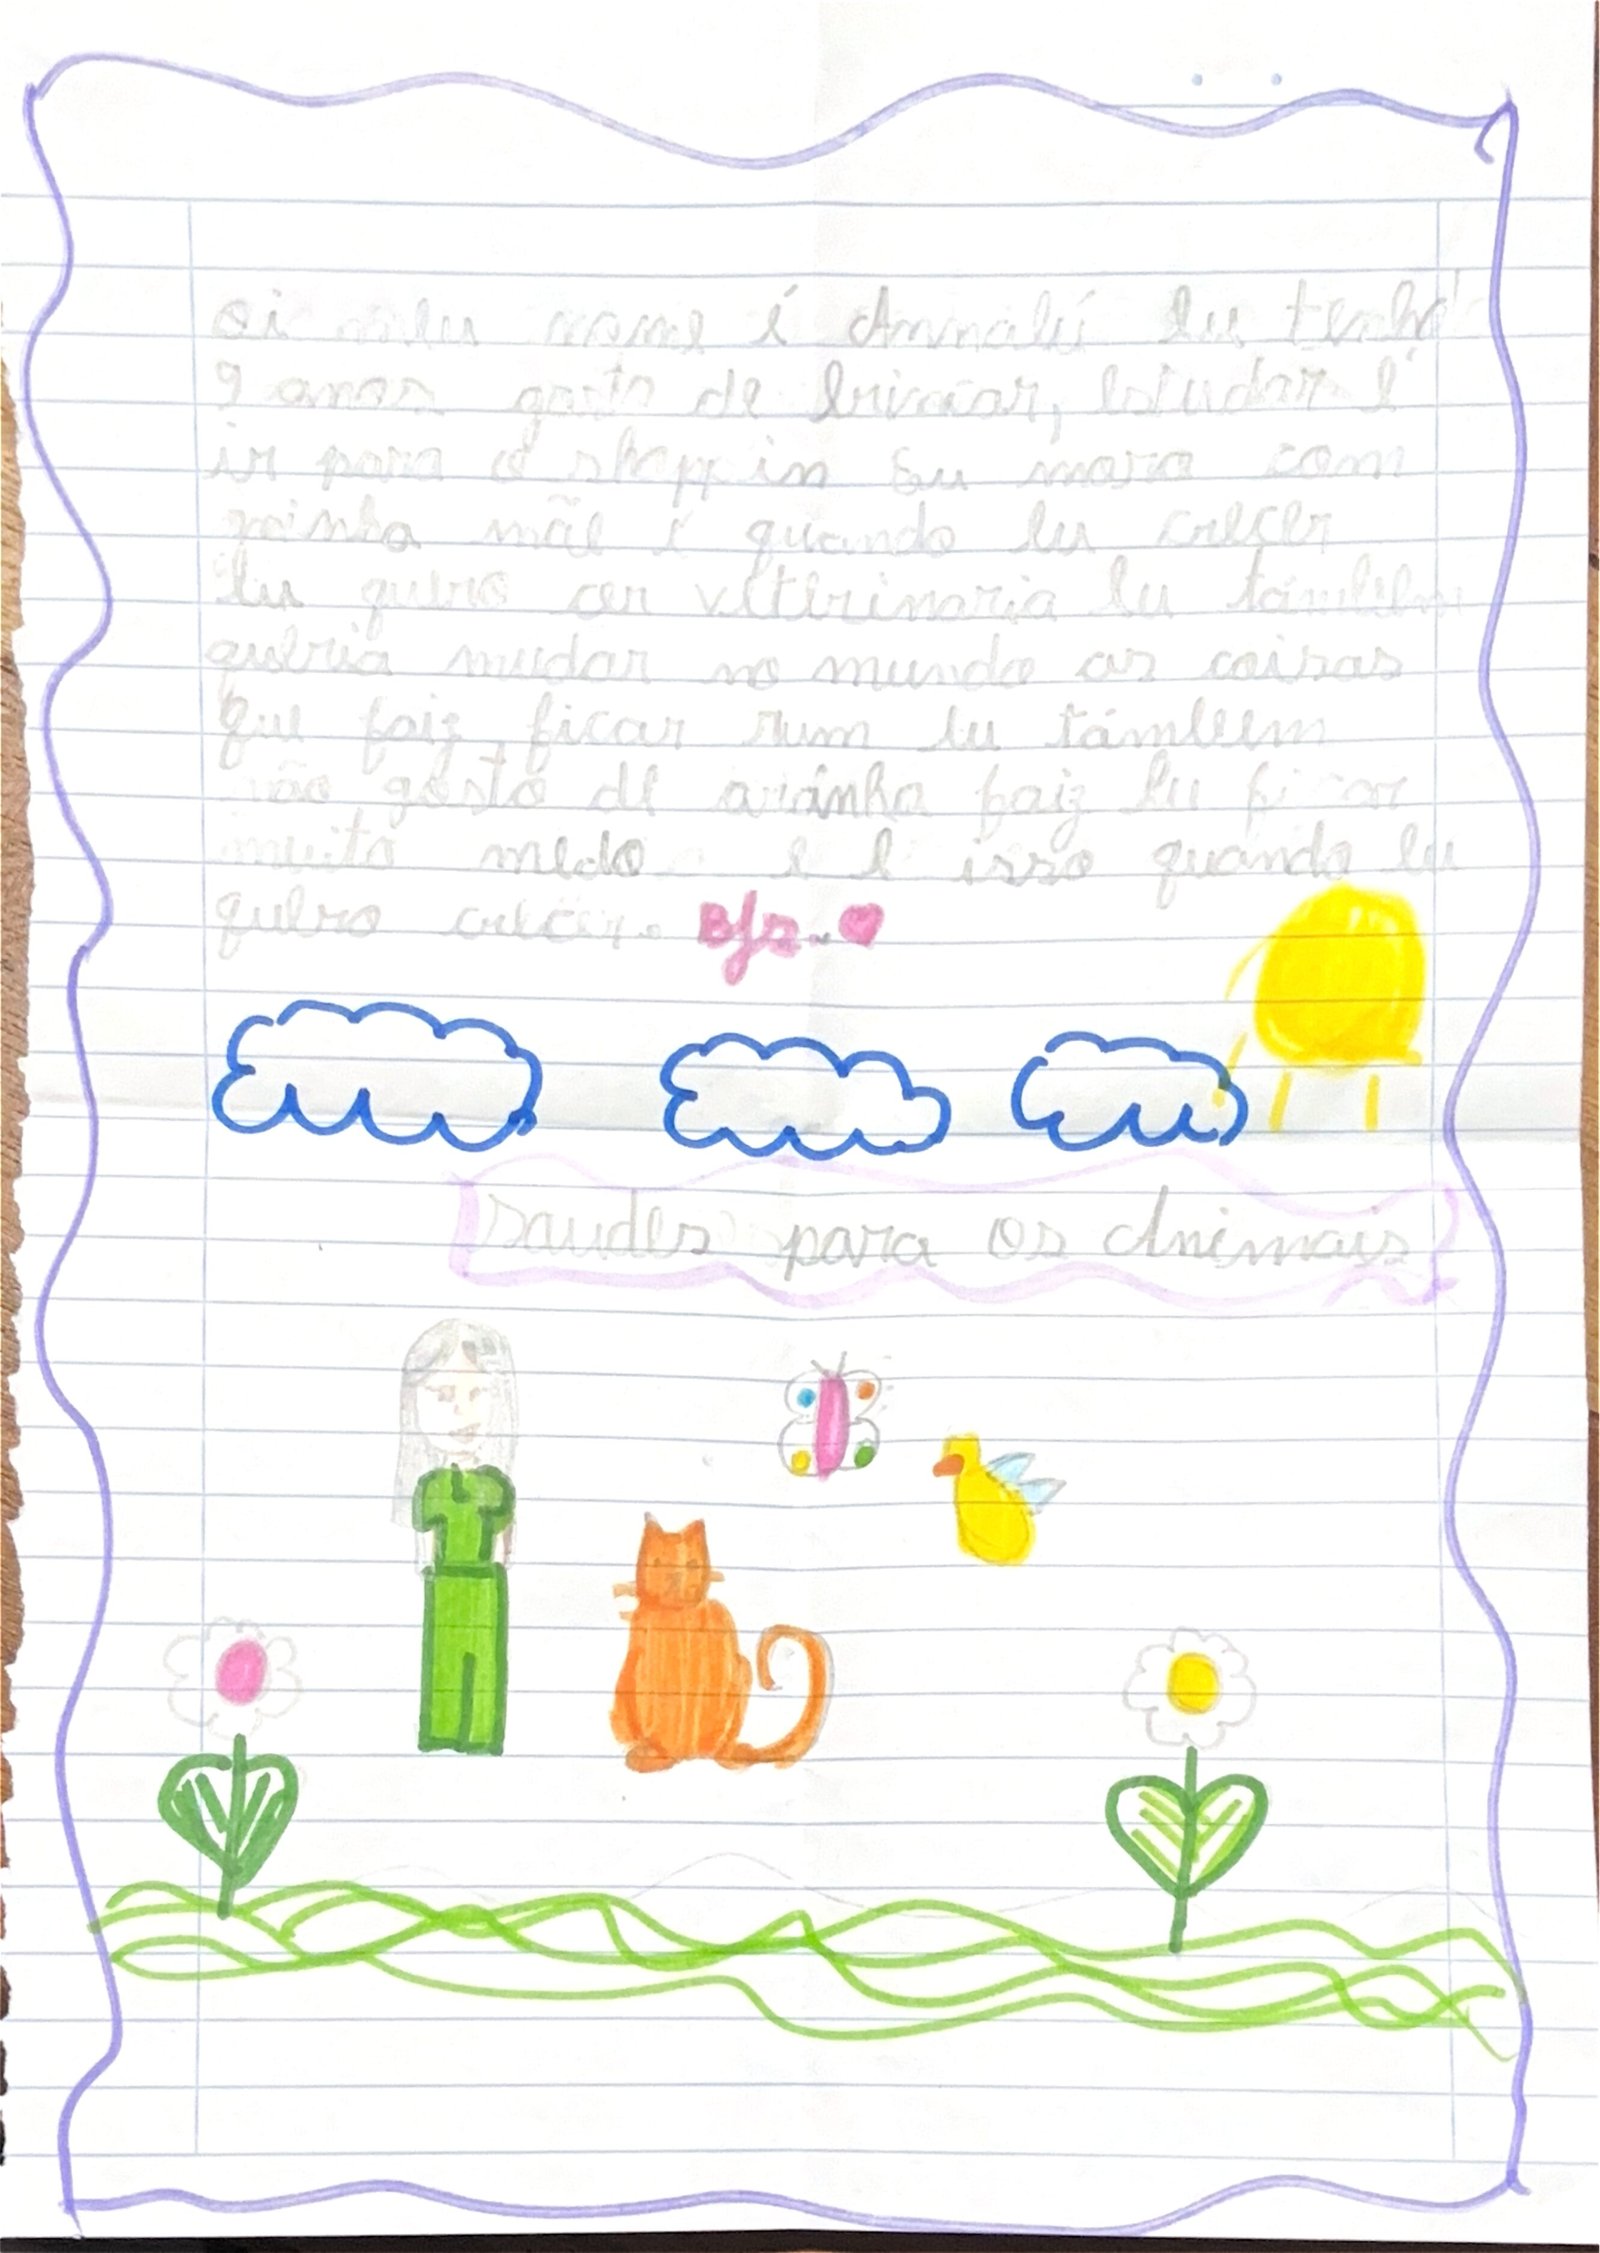 oi meu nome é Annalú eu tenho
9 anos gosto de brincar, estudar e
ir para o shoppin Eu moro com
minha mãe e quando eu crecer
eu quero cer veterinaria eu támbem
queria mudar no mundo as coisas
que faiz ficar rum eu támbem
não gosto de aranha faiz eu ficar
muito medo e é isso quando eu
quero crecer. Bjs..
saudes para os Animais